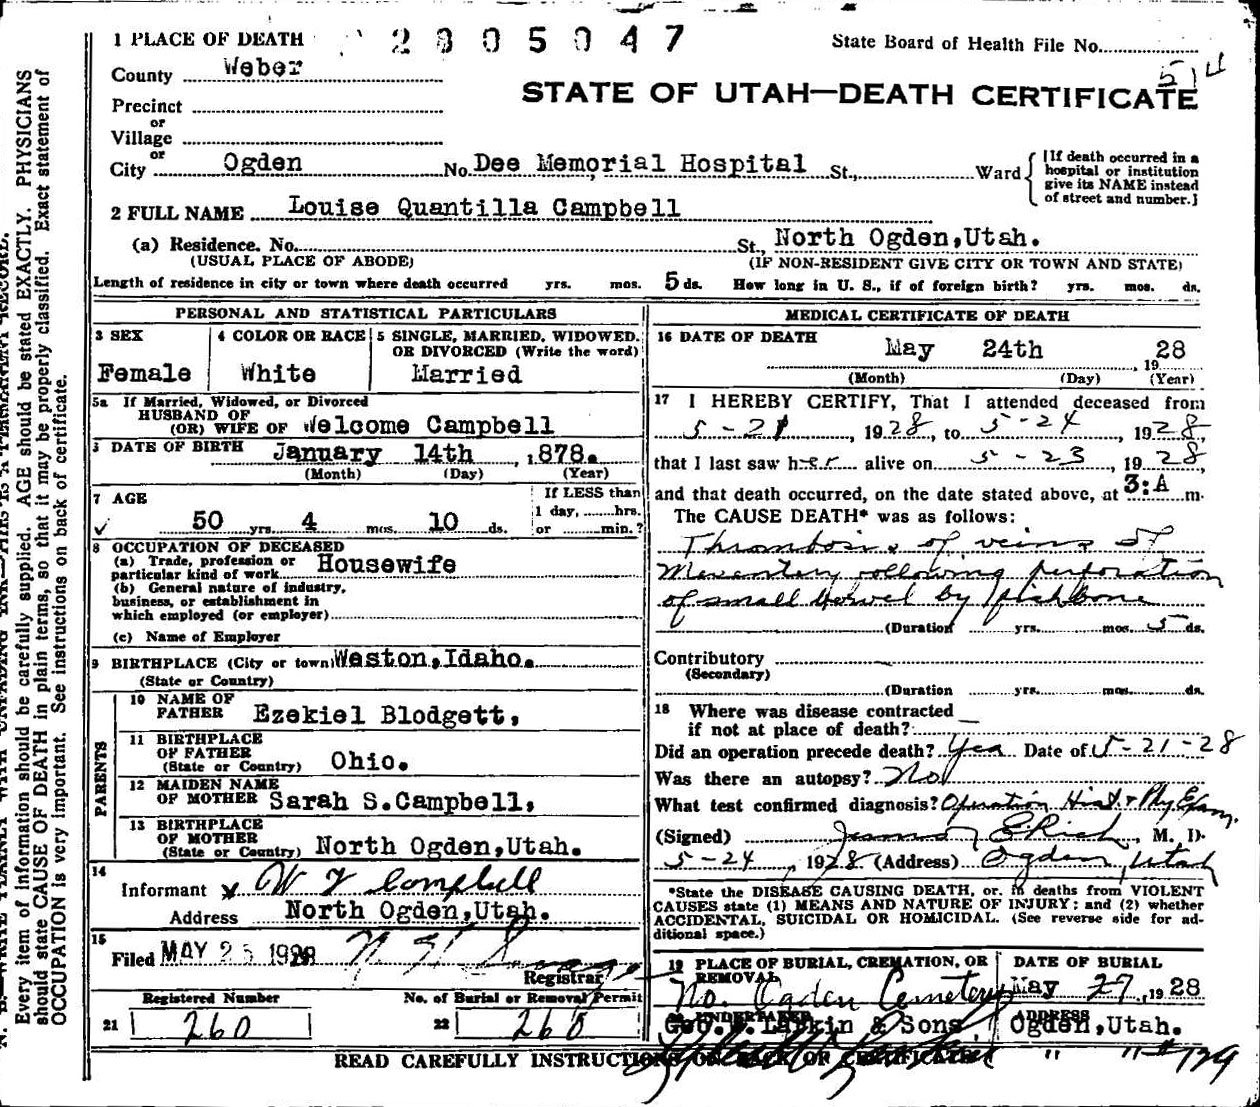 1 PLACE OF DEATH 2805047 State Board of Health File No.
514
County Weber
STATE OF UTAH—DEATH CERTIFICATE
Precinct
or
Village
or
City Ogden No. Dee Memorial Hospital St., Ward [If death occurred in a hospital or institution give its NAME instead of street and number.]
2 FULL NAME Louise Quantilla Campbell
(a) Residence. No. St., North Ogden, Utah.
(USUAL PLACE OF ABODE) (IF NON-RESIDENT GIVE CITY OR TOWN AND STATE)
Length of residence in city or town where death occurred yrs. mos. 5 ds. How long in U. S., if of foreign birth? yrs. mos. ds.
PERSONAL AND STATISTICAL PARTICULARS
3 SEX 4 COLOR OR RACE 5 SINGLE, MARRIED, WIDOWED,
OR DIVORCED (Write the word)
Female White Married
5a If Married, Widowed, or Divorced
HUSBAND OF
(OR) WIFE OF Welcome Campbell
DATE OF BIRTH January 14th ,878.
(Month) (Day) (Year)
7 AGE If LESS than
1 day, hrs.
50 yrs. 4 mos. 10 ds. or min.?
8 OCCUPATION OF DECEASED
(a) Trade, profession or
particular kind of work Housewife
(b) General nature of industry,
business, or establishment in
which employed (or employer)
(c) Name of Employer
9 BIRTHPLACE (City or town) Weston, Idaho.
(State or Country)
PARENTS
10 NAME OF
FATHER Ezekiel Blodgett,
11 BIRTHPLACE
OF FATHER
(State or Country) Ohio.
12 MAIDEN NAME
OF MOTHER Sarah S. Campbell,
13 BIRTHPLACE
OF MOTHER
(State or Country) North Ogden, Utah.
14
Informant W J Campbell
Address North Ogden, Utah.
15
Filed MAY 25 1928
Registrar
Registered Number No. of Burial or Removal Permit
21 260 22 260
MEDICAL CERTIFICATE OF DEATH
16 DATE OF DEATH
May 24th , 1928
(Month) (Day) (Year)
17 I HEREBY CERTIFY, That I attended deceased from
5-21, 1928, to 5-24, 1928,
that I last saw her alive on 5-23, 1928,
and that death occurred, on the date stated above, at 3:A m.
The CAUSE DEATH* was as follows:
Thrombosis of veins of
Mesentery following perforation
of small bowel by fishbone
(Duration yrs. mos. 5 ds.
Contributory
(Secondary)
(Duration yrs. mos. ds.
18 Where was disease contracted
if not at place of death?
Did an operation precede death? Yes Date of 5-21-28
Was there an autopsy? No
What test confirmed diagnosis? Operation Hist & Phy Exam.
(Signed) E Rich, M. D.
5-24, 1928 (Address) Ogden, Utah
*State the DISEASE CAUSING DEATH, or, in deaths from VIOLENT
CAUSES state (1) MEANS AND NATURE OF INJURY; and (2) whether
ACCIDENTAL, SUICIDAL OR HOMICIDAL. (See reverse side for additional space.)
19 PLACE OF BURIAL, CREMATION, OR REMOVAL DATE OF BURIAL
No. Ogden Cemetery May 27, 1928
UNDERTAKER ADDRESS
Larkin & Sons Ogden, Utah.
" " # 179
READ CAREFULLY INSTRUCTIONS ON BACK OF CERTIFICATE
Every item of information should be carefully supplied. AGE should be stated EXACTLY. PHYSICIANS
should state CAUSE OF DEATH in plain terms, so that it may be properly classified. Exact statement of
OCCUPATION is very important. See instructions on back of certificate.